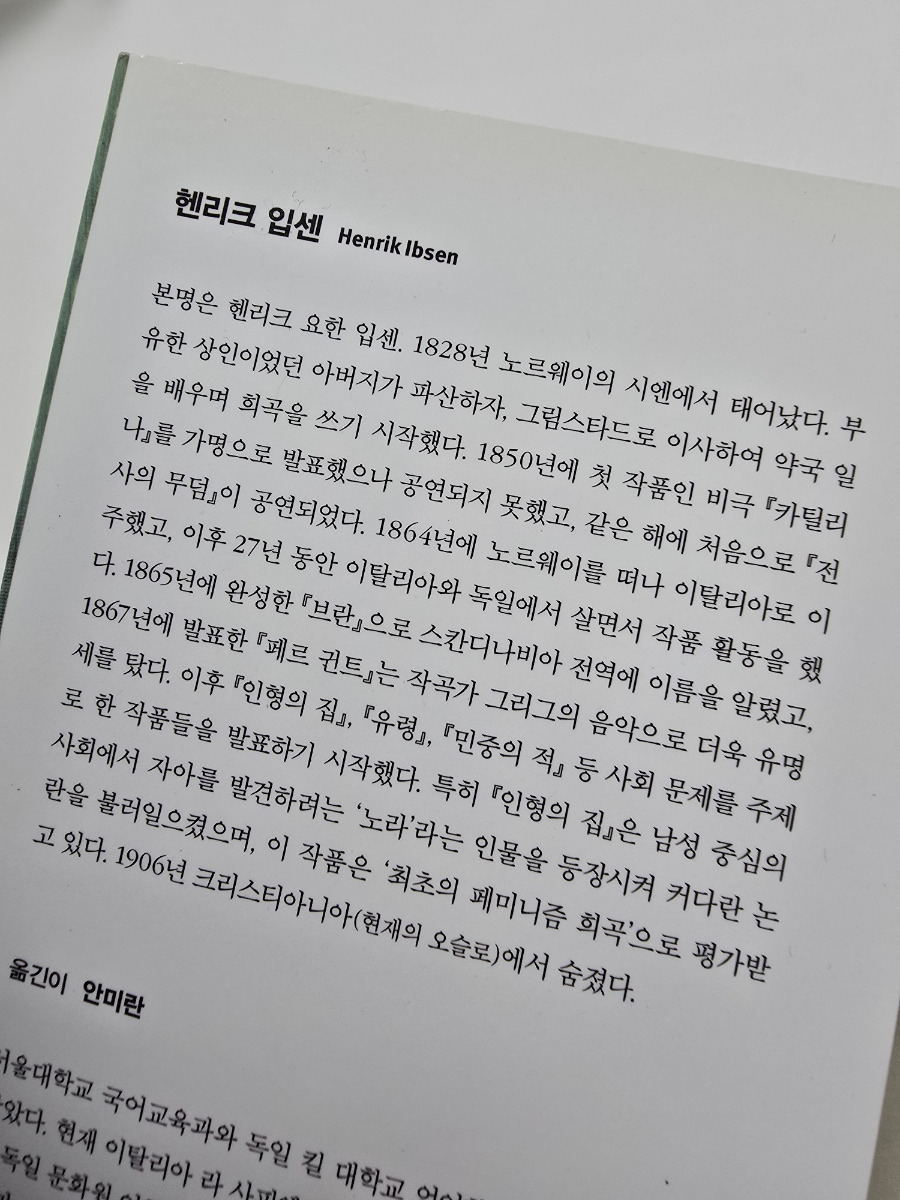 헨리크 입센 Henrik Ibsen
본명은 헨리크 요한 입센. 1828년 노르웨이의 시엔에서 태어났다. 부
유한 상인이었던 아버지가 파산하자, 그림스타드로 이사하여 약국 일
을 배우며 희곡을 쓰기 시작했다. 1850년에 첫 작품인 비극 『카틸리
나』를 가명으로 발표했으나 공연되지 못했고, 같은 해에 처음으로 『전
사의 무덤』이 공연되었다. 1864년에 노르웨이를 떠나 이탈리아로 이
주했고, 이후 27년 동안 이탈리아와 독일에서 살면서 작품 활동을 했
다. 1865년에 완성한 『브란』으로 스칸디나비아 전역에 이름을 알렸고,
1867년에 발표한 『페르 귄트』는 작곡가 그리그의 음악으로 더욱 유명
세를 탔다. 이후 『인형의 집』, 『유령』, 『민중의 적』 등 사회 문제를 주제
로 한 작품들을 발표하기 시작했다. 특히 『인형의 집』은 남성 중심의
사회에서 자아를 발견하려는 ‘노라’라는 인물을 등장시켜 커다란 논
란을 불러일으켰으며, 이 작품은 ‘최초의 페미니즘 희곡’으로 평가받
고 있다. 1906년 크리스티아니아(현재의 오슬로)에서 숨졌다.
옮긴이 안미란
서울대학교 국어교육과와 독일 킬 대학교
현재 이탈리아 라
독일 문화원